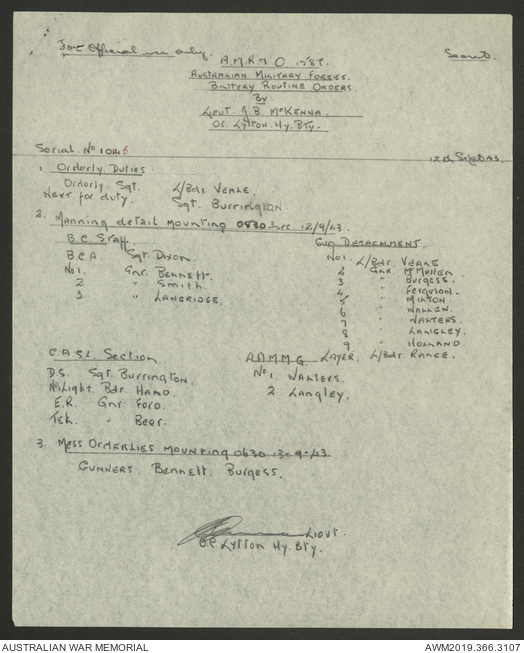 For Official use only. Secret.
A.M.R & O 1287.
Australian Military Forces.
Battery Routine Orders
By
Lieut. J B. McKenna.
OC. Lytton. Hy. Bty.
Serial. No 1046 12th Sept 43
1. Orderly Duties
Orderly Sgt. L/Bdr Veale.
Next for duty. Sgt. Burrington.
2. Manning detail mounting 0830 hrs 12/9/43.
B.C Staff. Gun Detachment.
B.C.A Sgt. Dixon. No 1. L/Bdr. Veale
No 1. Gnr. Bennett. 2 Gnr McMullen
2 " Smith. 3 " Burgess.
3. " Langridge. 4 " Ferguson.
5 " Milton
6 " Wallen.
7 " Walters.
8 " Langley.
9 " Holland
C.A.S.L. Section A.A.M.M.G Layer. L/Bdr. Rance.
D.S. Sgt. Burrington. No 1. Walters.
No 1 Light Bdr Hand. 2 Langley.
E.R. Gnr Ford.
Tel. " Beer.
3. Mess Orderlies mounting 0630 13-9-43
Gunners. Bennett. Burgess.
Lieut.
O.C Lytton Hy. Bty.
AUSTRALIAN WAR MEMORIAL AWM2019.366.3107